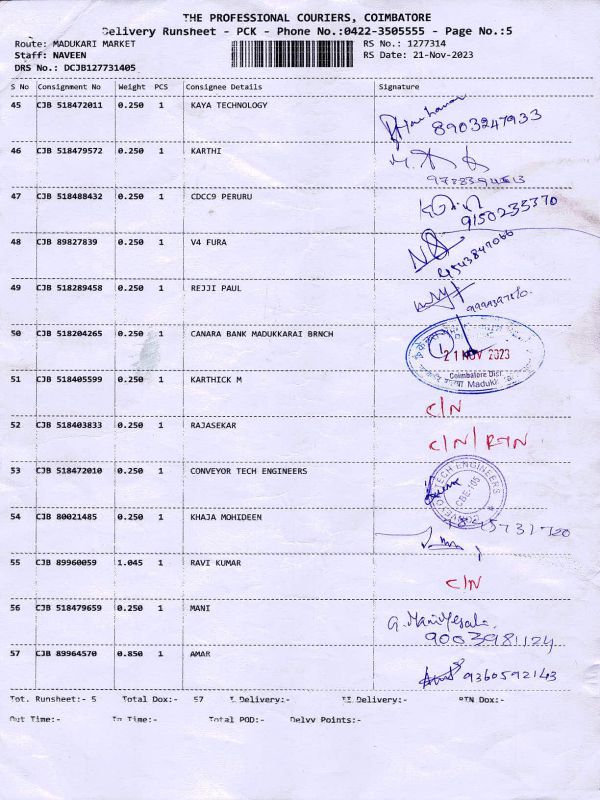 THE PROFESSIONAL COURIERS, COIMBATORE
Delivery Runsheet - PCK - Phone No.:0422-3505555 - Page No.:5
Route: MADUKARI MARKET RS No.: 1277314
Staff: NAVEEN RS Date: 21-Nov-2023
DRS No.: DCJB127731405
S No Consignment No Weight PCS Consignee Details Signature
45 CJB 518472011 0.250 1 KAYA TECHNOLOGY
8903247933
46 CJB 518479572 0.250 1 KARTHI
47 CJB 518488432 0.250 1 CDCC9 PERURU
9150235370
48 CJB 89827839 0.250 1 V4 FURA
9543847066
49 CJB 518289458 0.250 1 REJJI PAUL
50 CJB 518204265 0.250 1 CANARA BANK MADUKKARAI BRNCH
21 NOV 2023
Coimbatore Dist
51 CJB 518405599 0.250 1 KARTHICK M
C/N
52 CJB 518403833 0.250 1 RAJASEKAR
C/N/RTN
53 CJB 518472010 0.250 1 CONVEYOR TECH ENGINEERS
CONVEYOR TECH ENGINEERS
CBE-105
54 CJB 80021485 0.250 1 KHAJA MOHIDEEN
55 CJB 89960059 1.045 1 RAVI KUMAR
C/N
56 CJB 518479659 0.250 1 MANI
9003981124
57 CJB 89964570 0.850 1 AMAR
9360592143
Tot. Runsheet:- 5 Total Dox:- 57 I Delivery:- II Delivery:- RTN Dox:-
Out Time:- In Time:- Total POD:- Delvy Points:-